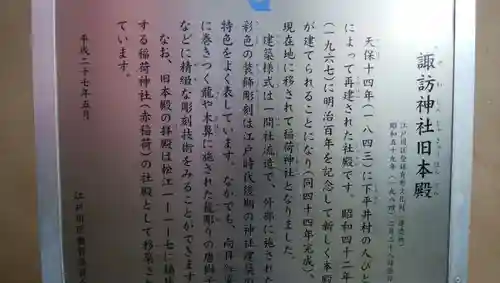 諏訪神社旧本殿
すわじんじゃきゅうほんでん
江戸川区登録有形文化財(建造物)
昭和五十九年(一九八四)二月二十八日登録
天保十四年(一八四三)に下平井村の人びと
によって再建された社殿です。昭和四十二年
(一九六七)に明治百年を記念して新しく本殿
が建てられることになり(同四十四年完成)、
現在地に移されて稲荷神社となりました。
建築様式は一間社流造で、外部に施された
彩色の装飾彫刻は江戸時代後期の神社建築の
特色をよく表しています。なかでも、向拝
に巻きつく龍や木鼻に施された籠彫りの唐獅子
などに精緻な彫刻技術をみることができます
なお、旧本殿の拝殿は松江一-一-七に鎮
する稲荷神社(赤稲荷)の社殿として移築され
ています。
平成二十七年五月
江戸川区教育委員会